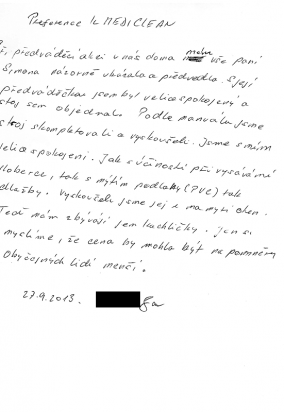 Preference k MEDICLEAN
Při předváděcí akci v nás doma vše paní
Simona názorně ukázala a předvedla. S její
předváděčkou jsem byl velice spokojený a
stroj sem objednal. Podle manuálu jsme
stroj skompletovali a vyskoušeli. Jsme s ním
velice spokojeni. Jak s účinosti při vysávání
koberce, tak s mýtím podlahy (PVC) tak
dlažby. Vyskoušeli jsme jej i na mytí oken.
Teď nám zbývají jen kachličky. Jen si
myslíme, že cena by mohla být na poměry
obyčejných lidí menčí.
27.9.2013.